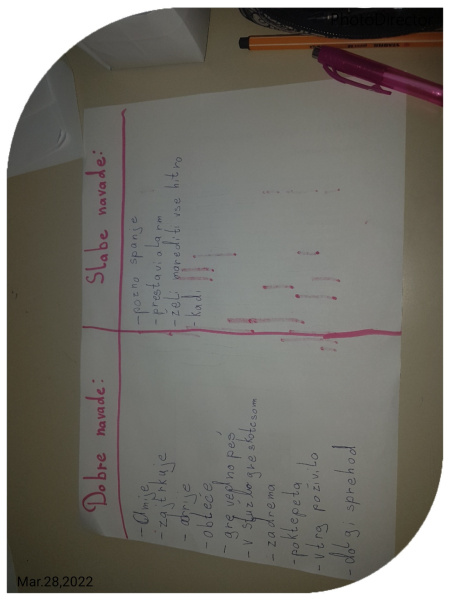 PhotoDirector
Dobre navade:
- umije
- zajtrkuje
- obleče
- gre vedno peš
- v službo gre z kotesom
- zadrema
- poklepeta
- v trg požívilo
- dolgi sprehod
Slabe navade:
- pozno spanje
- prestavi alarm
- želi narediti vse hitro
- kadi
Mar.28,2022